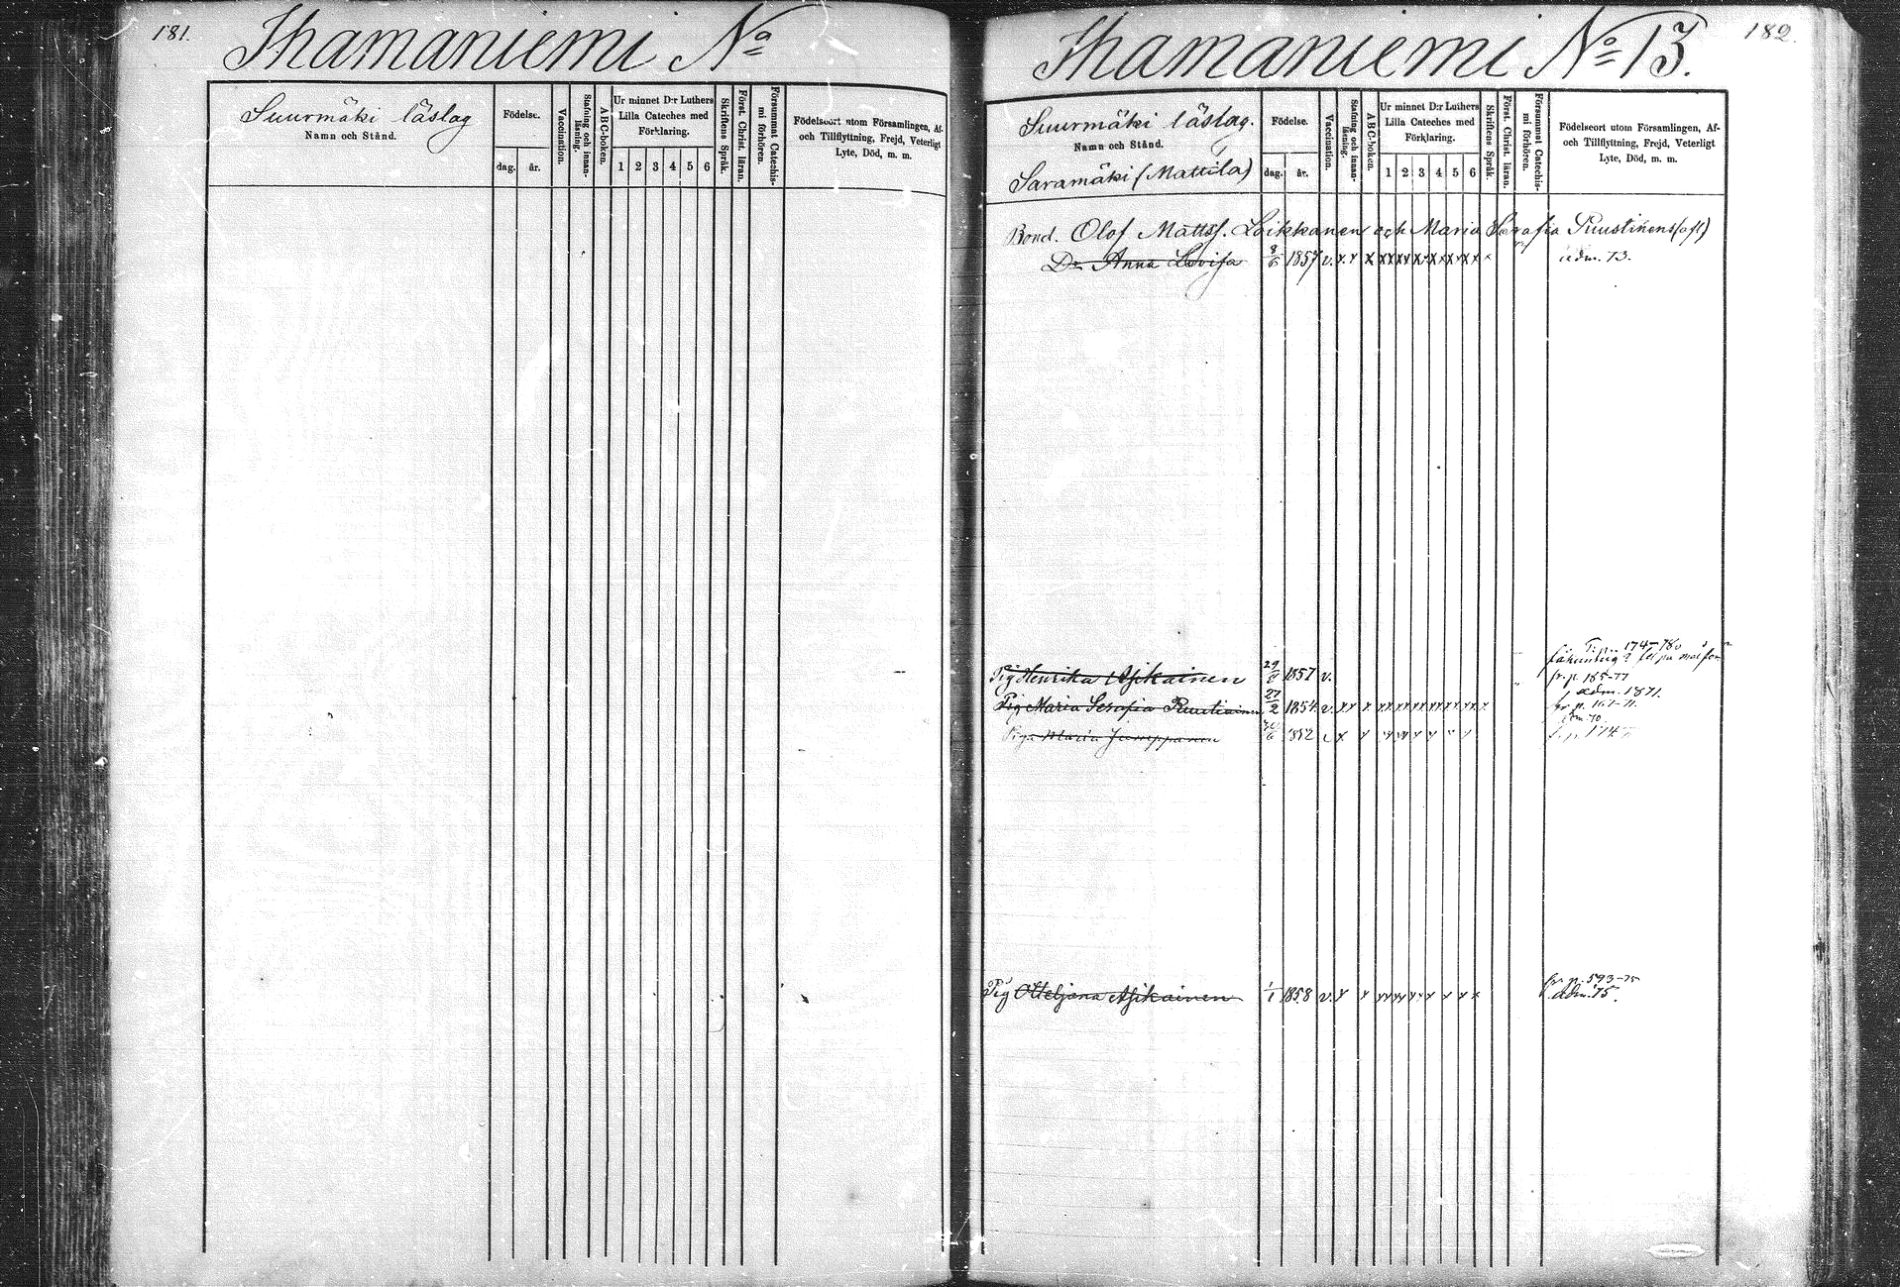 181.
Ihamaniemi No
Suurmäki läslag
Namn och Stånd.
Födelse.
dag.
år.
Vaccination.
Stafning och innan-
läsning.
ABC-boken.
Ur minnet D:r Luthers
Lilla Cateches med
Förklaring.
1 2 3 4 5 6
Skriftens Språk.
Först. Christ. läran.
Försummat Catechis-
mi förhören.
Födelseort utom Församlingen, Af-
och Tillflyttning, Frejd, Veterligt
Lyte, Död, m. m.
182.
Ihamaniemi No 13.
Suurmäki läslag.
Namn och Stånd.
Saramäki (Mattila)
Födelse.
dag.
år.
Vaccination.
Stafning och innan-
läsning.
ABC-boken.
Ur minnet D:r Luthers
Lilla Cateches med
Förklaring.
1 2 3 4 5 6
Skriftens Språk.
Först. Christ. läran.
Försummat Catechis-
mi förhören.
Födelseort utom Församlingen, Af-
och Tillflyttning, Frejd, Veterligt
Lyte, Död, m. m.
Bond. Olof Mattsf. Loikkanen och Maria Serafia
Dr Anna Lovisa 8/6 1857 v. x x x xx xx xx xx xx xx x adm. 73.
174-78
Pig Henrika Asikainen 1857 v. fr. p. 185-77
adm. 1871.
Pig Maria Serafia Puustinen 27/2 1854 v. xx x xx xx xx xx xx xx x fr. p. 167-71.
Piga Maria Jumppanen 1852
fr. p. 593-75
Pig Otteljana Asikainen 1/1 1858 v. x x xx xx x x x x x adm. 75.